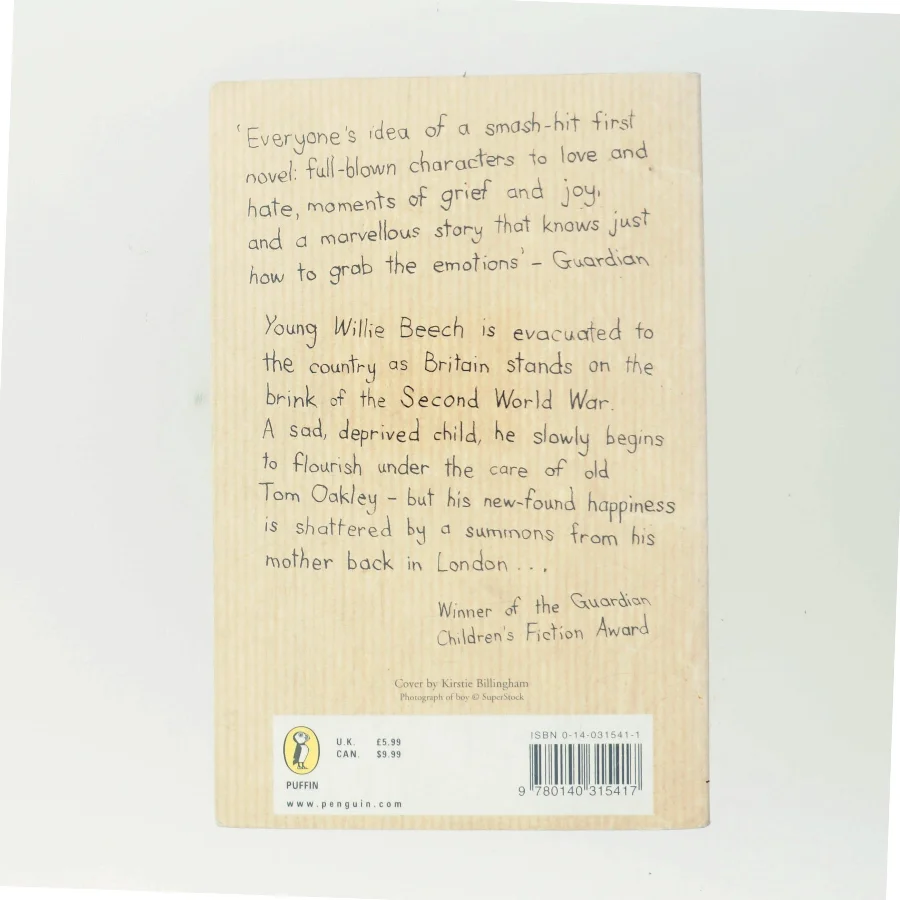 'Everyone's idea of a smash-hit first
novel: full-blown characters to love and
hate, moments of grief and joy,
and a marvellous story that knows just
how to grab the emotions' – Guardian
Young Willie Beech is evacuated to
the country as Britain stands on the
brink of the Second World War.
A sad, deprived child, he slowly begins
to flourish under the care of old
Tom Oakley – but his new-found happiness
is shattered by a summons from his
mother back in London ...
Winner of the Guardian
Children's Fiction Award
Cover by Kirstie Billingham
Photograph of boy © SuperStock
U.K. £5.99
CAN. $9.99
PUFFIN
www.penguin.com
ISBN 0-14-031541-1
9 780140 315417